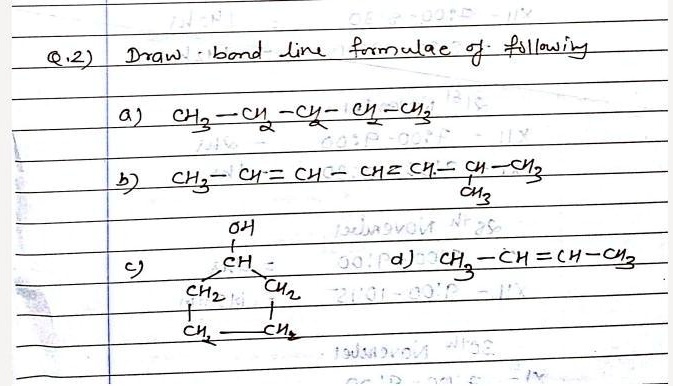 Q.2) Draw bond line formulae of following
a) CH3 — CH2 — CH2 — CH2 — CH3
b) CH3 — CH = CH — CH = CH — CH — CH3
CH3
OH
c) CH d) CH3 — CH = CH — CH3
CH2 CH2
CH2 — CH2